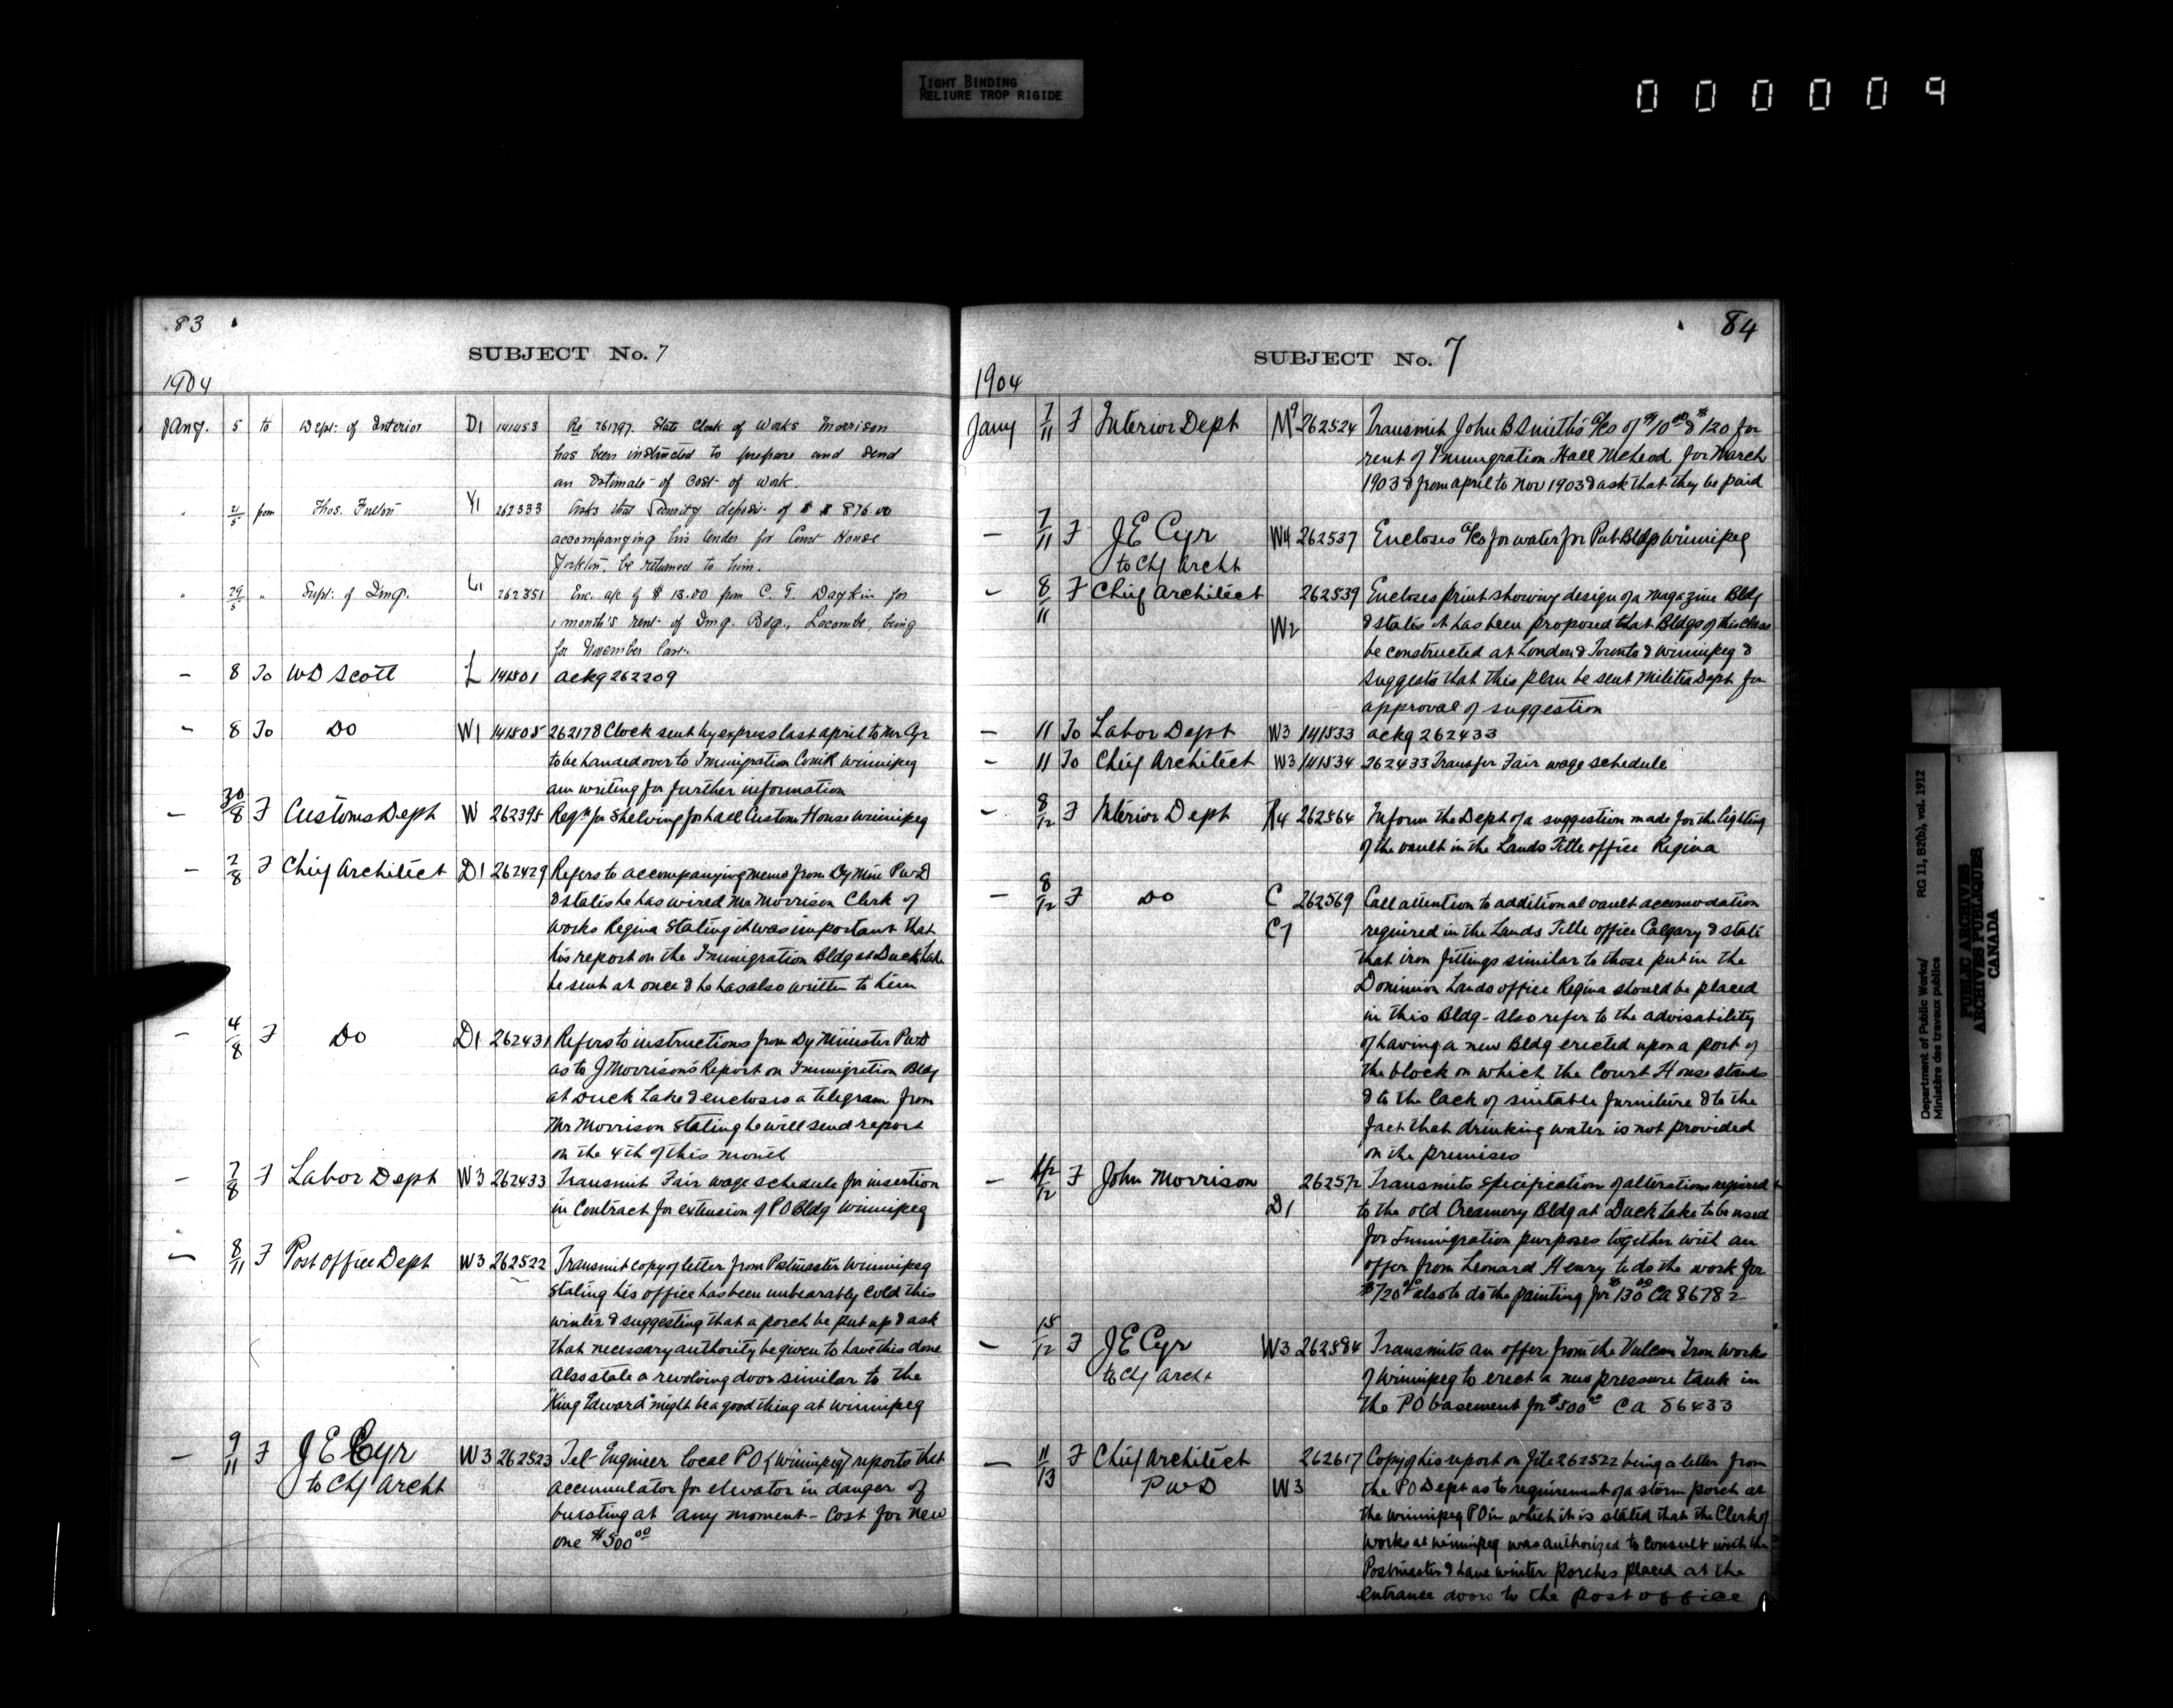 TIGHT BINDING
RELIURE TROP RIGIDE
000009
83
SUBJECT No. 7
1904
Jany. 5 to Dept. of Interior D1 141453 Re 261797. State Clerk of Works Morrison
has been instructed to prepare and send
an estimate of cost of work.
" 21/5 from Thos. Y1 262333 Asks that Security deposit of $ 876.00
accompanying his tender for Court House
Yorkton, be returned to him.
" 29/5 " Supt. of Img. L1 262351 Enc. a/c of $ 13.00 from C. T. Daykin for
1 month's rent of Img. Bdg., Lacombe, being
for November last.
- 8 To WD Scott L 141501 ackg 262209
- 8 To Do W1 141505 262178 Clock sent by express last april to Mr Cyr
to be handed over to Immigration Comr Winnipeg
am writing for further information
- 30/8 F Customs Dept W 262395 Reqn for Shelving for hall Customs House Winnipeg
- 2/8 F Chief Architect D1 262429 Refers to accompanying memo from Dy Min PWD
& states he has wired Mr Morrison Clerk of
works Regina stating it was important that
his report on the Immigration Bldg at Duck Lake
be sent at once & he has also written to him
- 4/8 F Do D1 262431 Refers to instructions from Dy Minister PWD
as to J Morrison's Report on Immigration Bldg
at Duck Lake & encloses a telegram from
Mr Morrison stating he will send report
on the 4th of this month
- 7/8 F Labor Dept W3 262433 Transmit Fair wage schedule for insertion
in Contract for extension of PO Bldg Winnipeg
- 8/11 F Post Office Dept W3 262522 Transmit copy of letter from Postmaster Winnipeg
stating his office has been unbearably cold this
winter & suggesting that a porch be put up & ask
that necessary authority be given to have this done
Also state a revolving door similar to the
"King Edward" might be a good thing at Winnipeg
- 9/11 F J E Cyr W3 262523 Tel- Engineer local PO (Winnipeg) reports that
to Chf Archt accumulator for elevator in danger of
bursting at any moment - Cost for new
one $500 00
84
SUBJECT No. 7
1904
Jany 7/11 F Interior Dept M9 262524 Transmit John B Smith's a/cs of $10 00 & $120 for
rent of Immigration Hall McLeod for March
1903 & from april to Nov 1903 & ask that they be paid
- 7/11 F J E Cyr W4 262537 Encloses a/cs for water for Pub Bldgs Winnipeg
to Chf Archt
- 8/11 F Chief Architect 262539 Encloses print showing design of a magazine Bldg
W2 & states it has been proposed that Bldgs of this class
be constructed at London & Toronto & Winnipeg &
suggests that this plan be sent Militia Dept for
approval of suggestion
- 11 To Labor Dept W3 141533 ackg 262433
- 11 To Chief Architect W3 141534 262433 Transfer Fair wage schedule
- 8/12 F Interior Dept R4 262564 Inform the Dept of a suggestion made for the lighting
of the vault in the Lands Title office Regina
- 8/12 F Do C 262569 Call attention to additional vault accomodation
C7 required in the Lands Title office Calgary & state
that iron fittings similar to those put in the
Dominion Lands office Regina should be placed
in this Bldg - Also refer to the advisability
of having a new Bldg erected upon a part of
the block on which the Court House stands
& to the lack of suitable furniture & to the
fact that drinking water is not provided
on the premises
- /12 F John Morrison 262572 Transmits specification of alterations required
D1 to the old Creamery Bldg at Duck Lake to be used
for Immigration purposes together with an
offer from Leonard Henry to do the work for
$720 00 also to do the painting for $130 00 CA 86782
- 15/12 F J E Cyr W3 262584 Transmits an offer from the Vulcan Iron Works
to Chf Archt of Winnipeg to erect a new pressure tank in
the PO basement for $500 00 CA 86433
- 11/13 F Chief Architect 262617 Copy of his report on file 262522 being a letter from
PWD W3 the PO Dept as to requirement of a storm porch at
the Winnipeg PO in which it is stated that the Clerk of
works at Winnipeg was authorized to consult with the
Postmaster & have winter porches placed at the
entrance doors to the post office
Department of Public Works/ RG 11, B2(b), vol. 1912
Ministère des travaux publics
PUBLIC ARCHIVES
ARCHIVES PUBLIQUES
CANADA